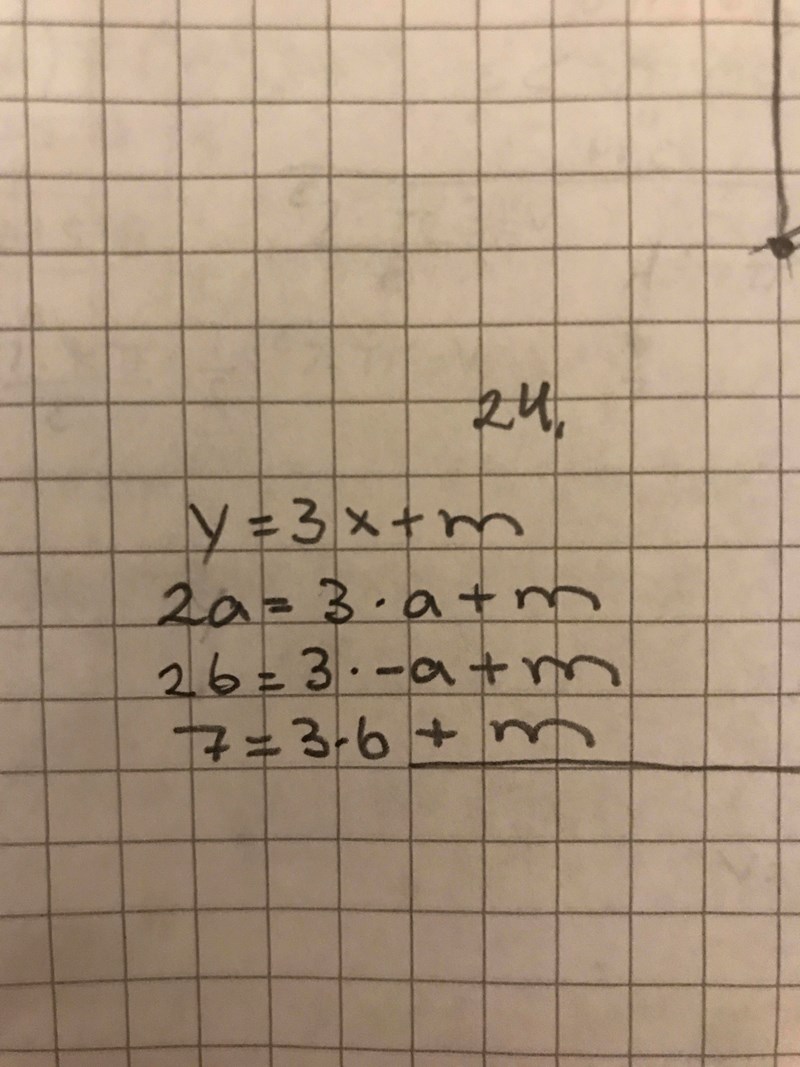 24.
y = 3x + m
2a = 3 · a + m
2b = 3 · -a + m
7 = 3 · b + m